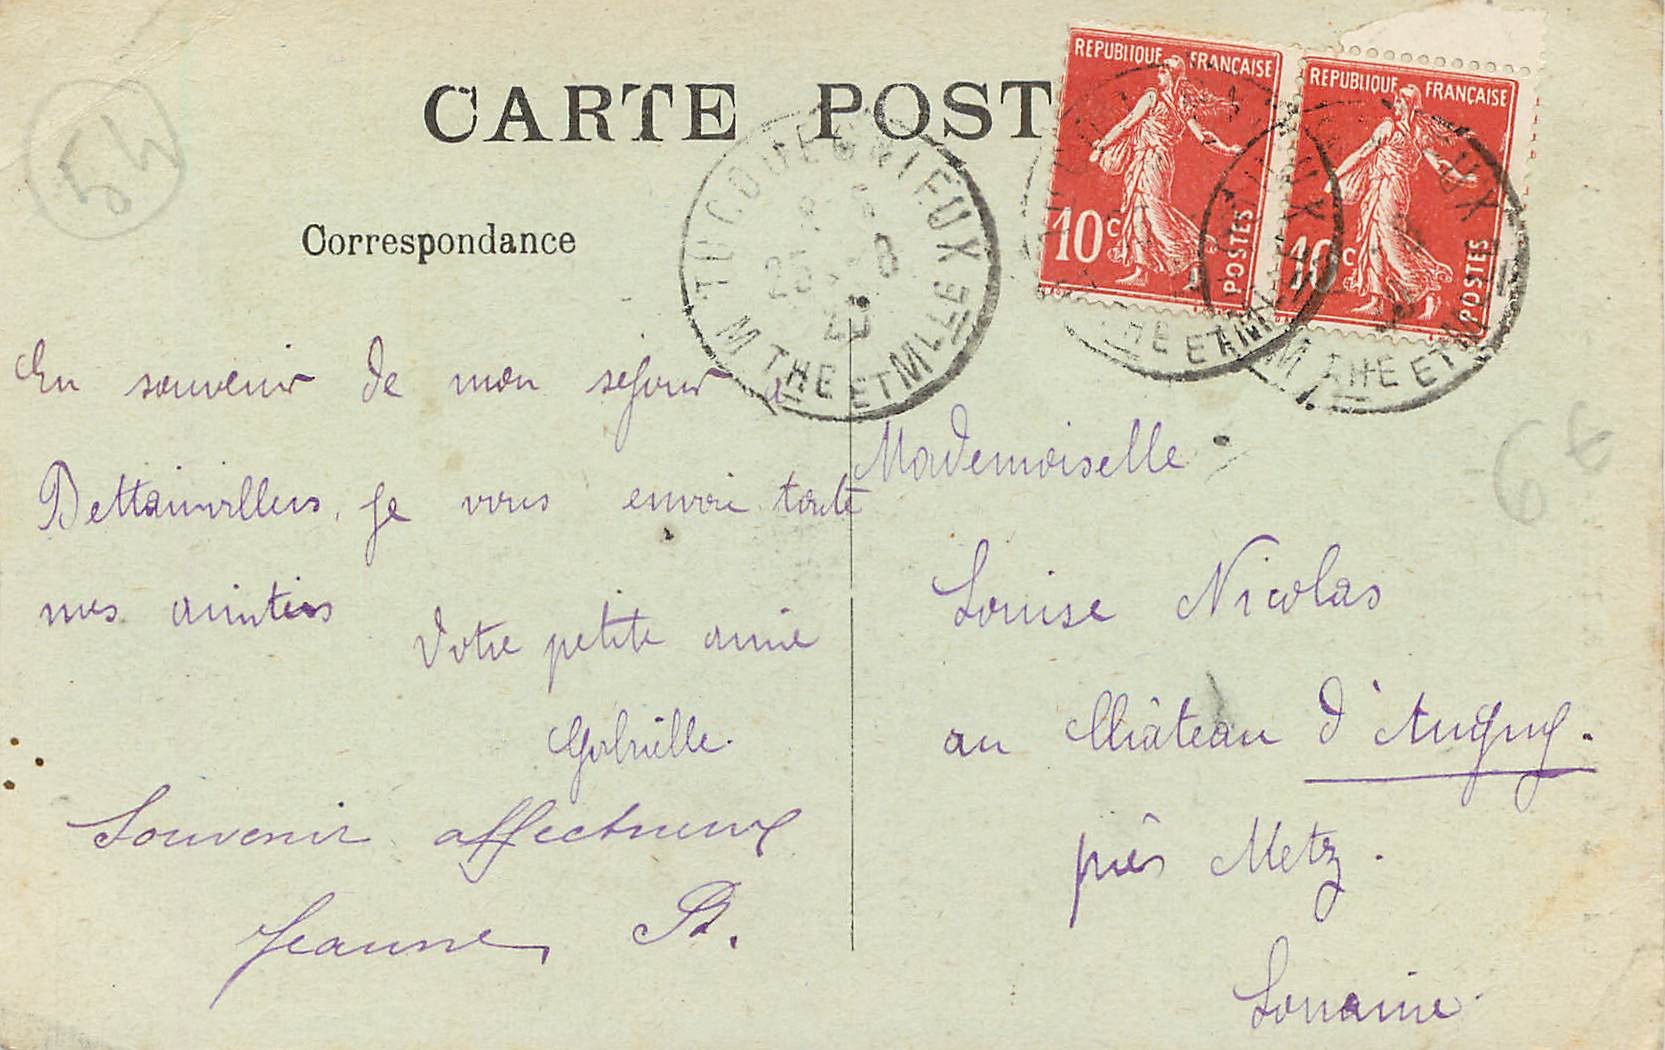 54
CARTE POST
REPUBLIQUE FRANÇAISE
10c
POSTES
REPUBLIQUE FRANÇAISE
10c
POSTES
TUCQUEGNIEUX
25 - 8
20
M THE ET M LLE
THE ET M
M THE ET M
Correspondance
En souvenir de mon sejour a
Bettainvillers, je vous envoie toute
mes amities
Votre petite amie
Gabrielle.
Souvenir affectueux
Jeanne B.
Mademoiselle
Louise Nicolas
au Château d'Augny.
près Metz.
Lorraine
6 €